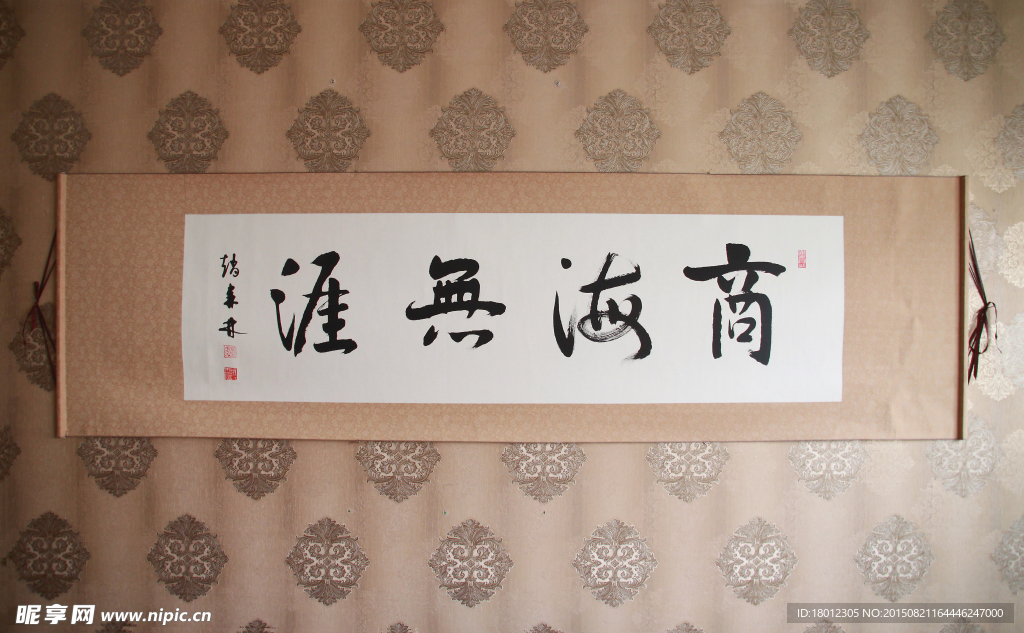 商海無涯
昵享网 www.nipic.cn
ID:18012305 NO:20150821164446247000